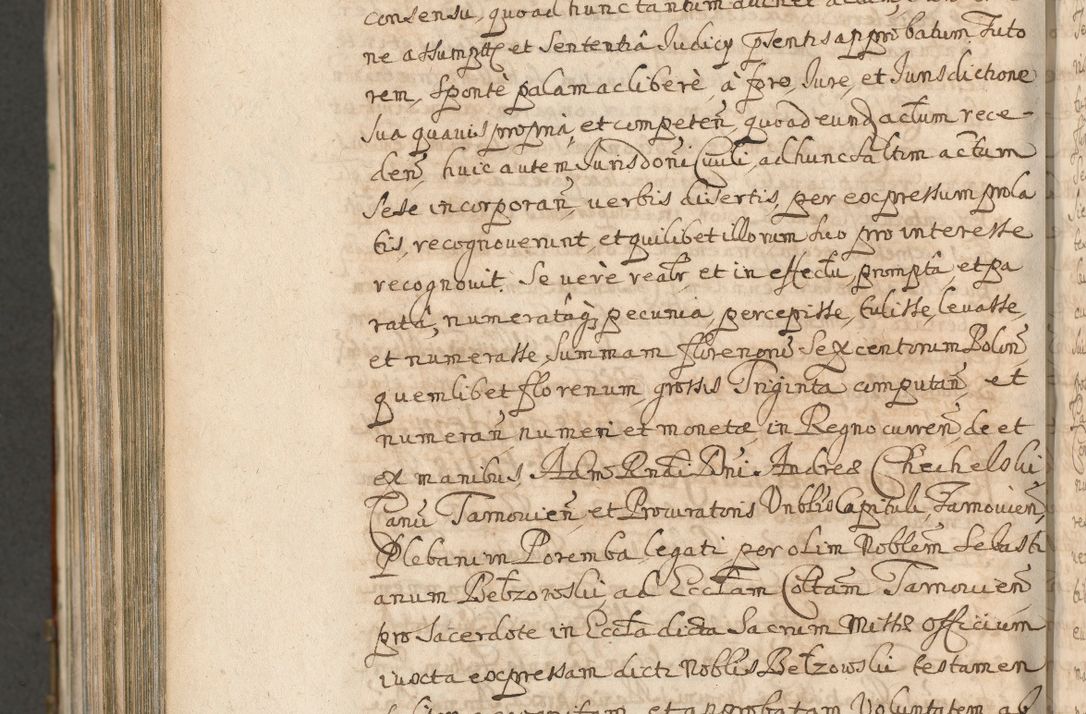 consensu, quoad hunc tantum
ne assumptū et Sententiâ Judicÿ pñtis approbatum Tuto
rem, sponte palam ac liberè, à foro, Jure, et Jurisdictione
sua quauis propria, et competeñ, quoad eund actum rece-
deñ, huic autem Jurisdoñi Ciuili, ad hunc saltim actum
sese incorporañ, uerbis disertis, per expressum prola
tis, recognouerunt, et quilibet illorum suo pro interesse
recognouit. Se verè realr et in effectu, prompta, et pa
rata, numeratâq; pecunia, percepisse, tulisse, leuasse,
et numerasse Summam florenorũ Sexcentorum Polon,
quemlibet florenum grossis Triginta computañ, et
numerañ numeri et monetæ in Regno curreñ, de et
ex manibus Adm Rndi Dni Andreæ Chechelski
Canci Tarnouieñ, et Procuratoris Vnblis Capituli Tarnouieñ,
Plebani in Poremba, legati per olim Noblem Sebasti
anum Bełzowski, ad Ecclam Colltam Tarnouieñ
pro Sacerdote in Eccla dicta Sacrum Missæ officium
iuxta expressam dicti Noblis Bełzowski testamen
et approbatam Voluntatem ab